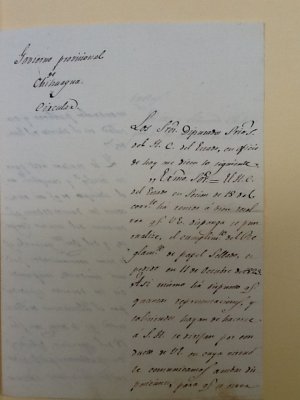 Govierno provisional
de
Chihuagua.
Circular
Los Sres. Diputados Srios.
del H. C. del Estado, en oficio
de hoy me dicen lo siguiente
Exmo. Sor. = El H. C.
del Estado en Sesion de 18 del
corrte. ha tenido á bien
q. V.E. disponga se pun
tualize, el cumplimto. del Re
glamto. de papel Sellado, es
pedido en 11 de Octubre de
Asi mismo ha dispuesto q.
quantas representaciones y
solicitudes hayan de hacerse
á S.H. se dirijan por con
ducto de VE en cuya
le comunicamos ambas dis
posiciones, para q. se sirva